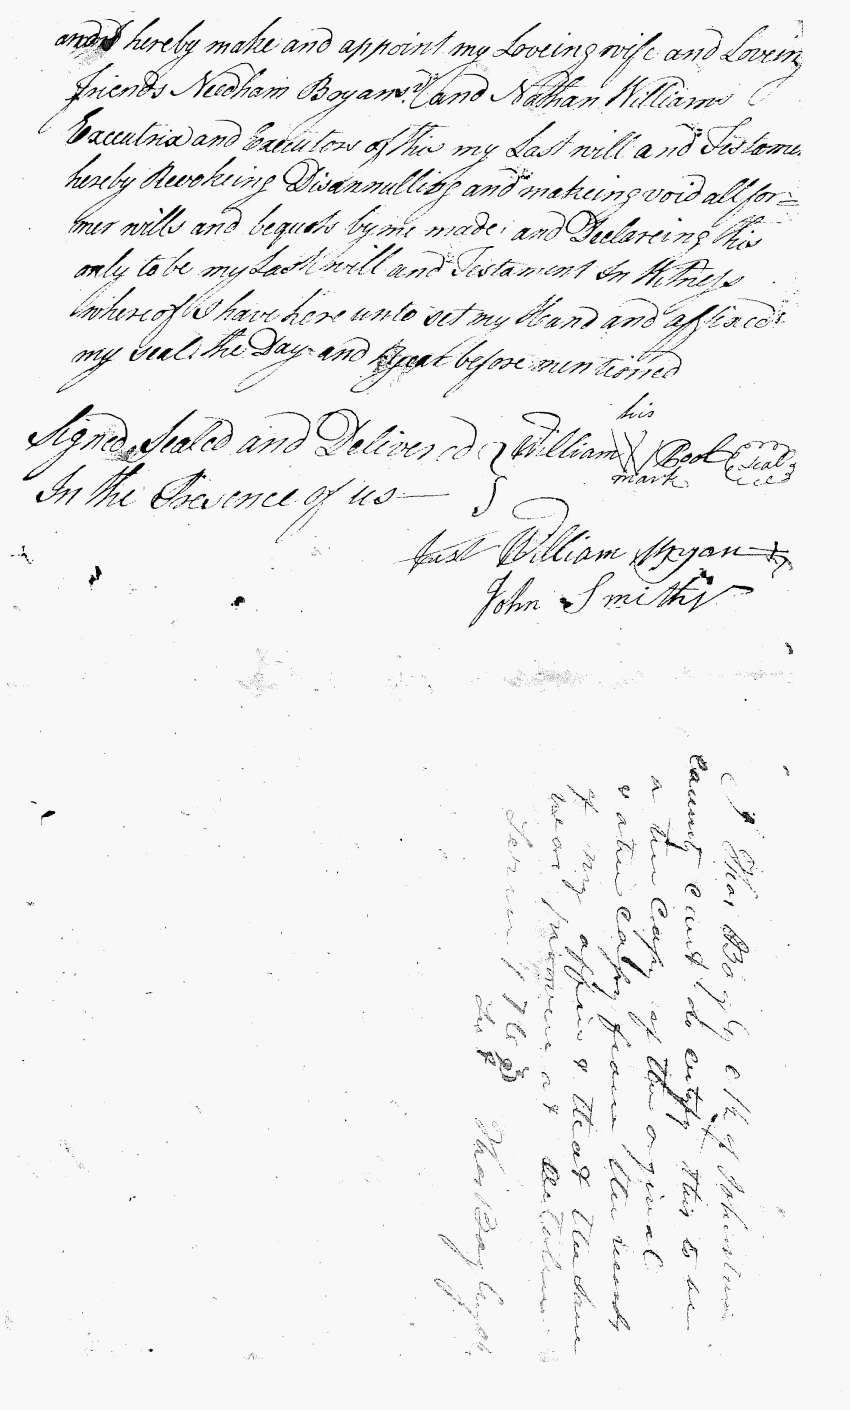 and I hereby make and appoint my Loveing wife and Loveing
friends Needham Bryan and Nathan Williams
Executrix and Executors of this my Last will and Testame
hereby Revokeing Disannulling and makeing void all for=
mer wills and bequets by me made and Declareing this
only to be my Last will and Testament In Witness
whereof I have here unto set my Hand and affixed
my seal the Day and Year before mentioned
his
Signed Sealed and Delivered } William Pool Seal
mark
In the Presence of us
Just William Bryan
John Smith
I Thos Clk of Johnston
County Court do certify this to be
a true Copy of the orginal
& a true Copy from the records
of my office & that the same
was proven at October
Term 1762
Test Thos